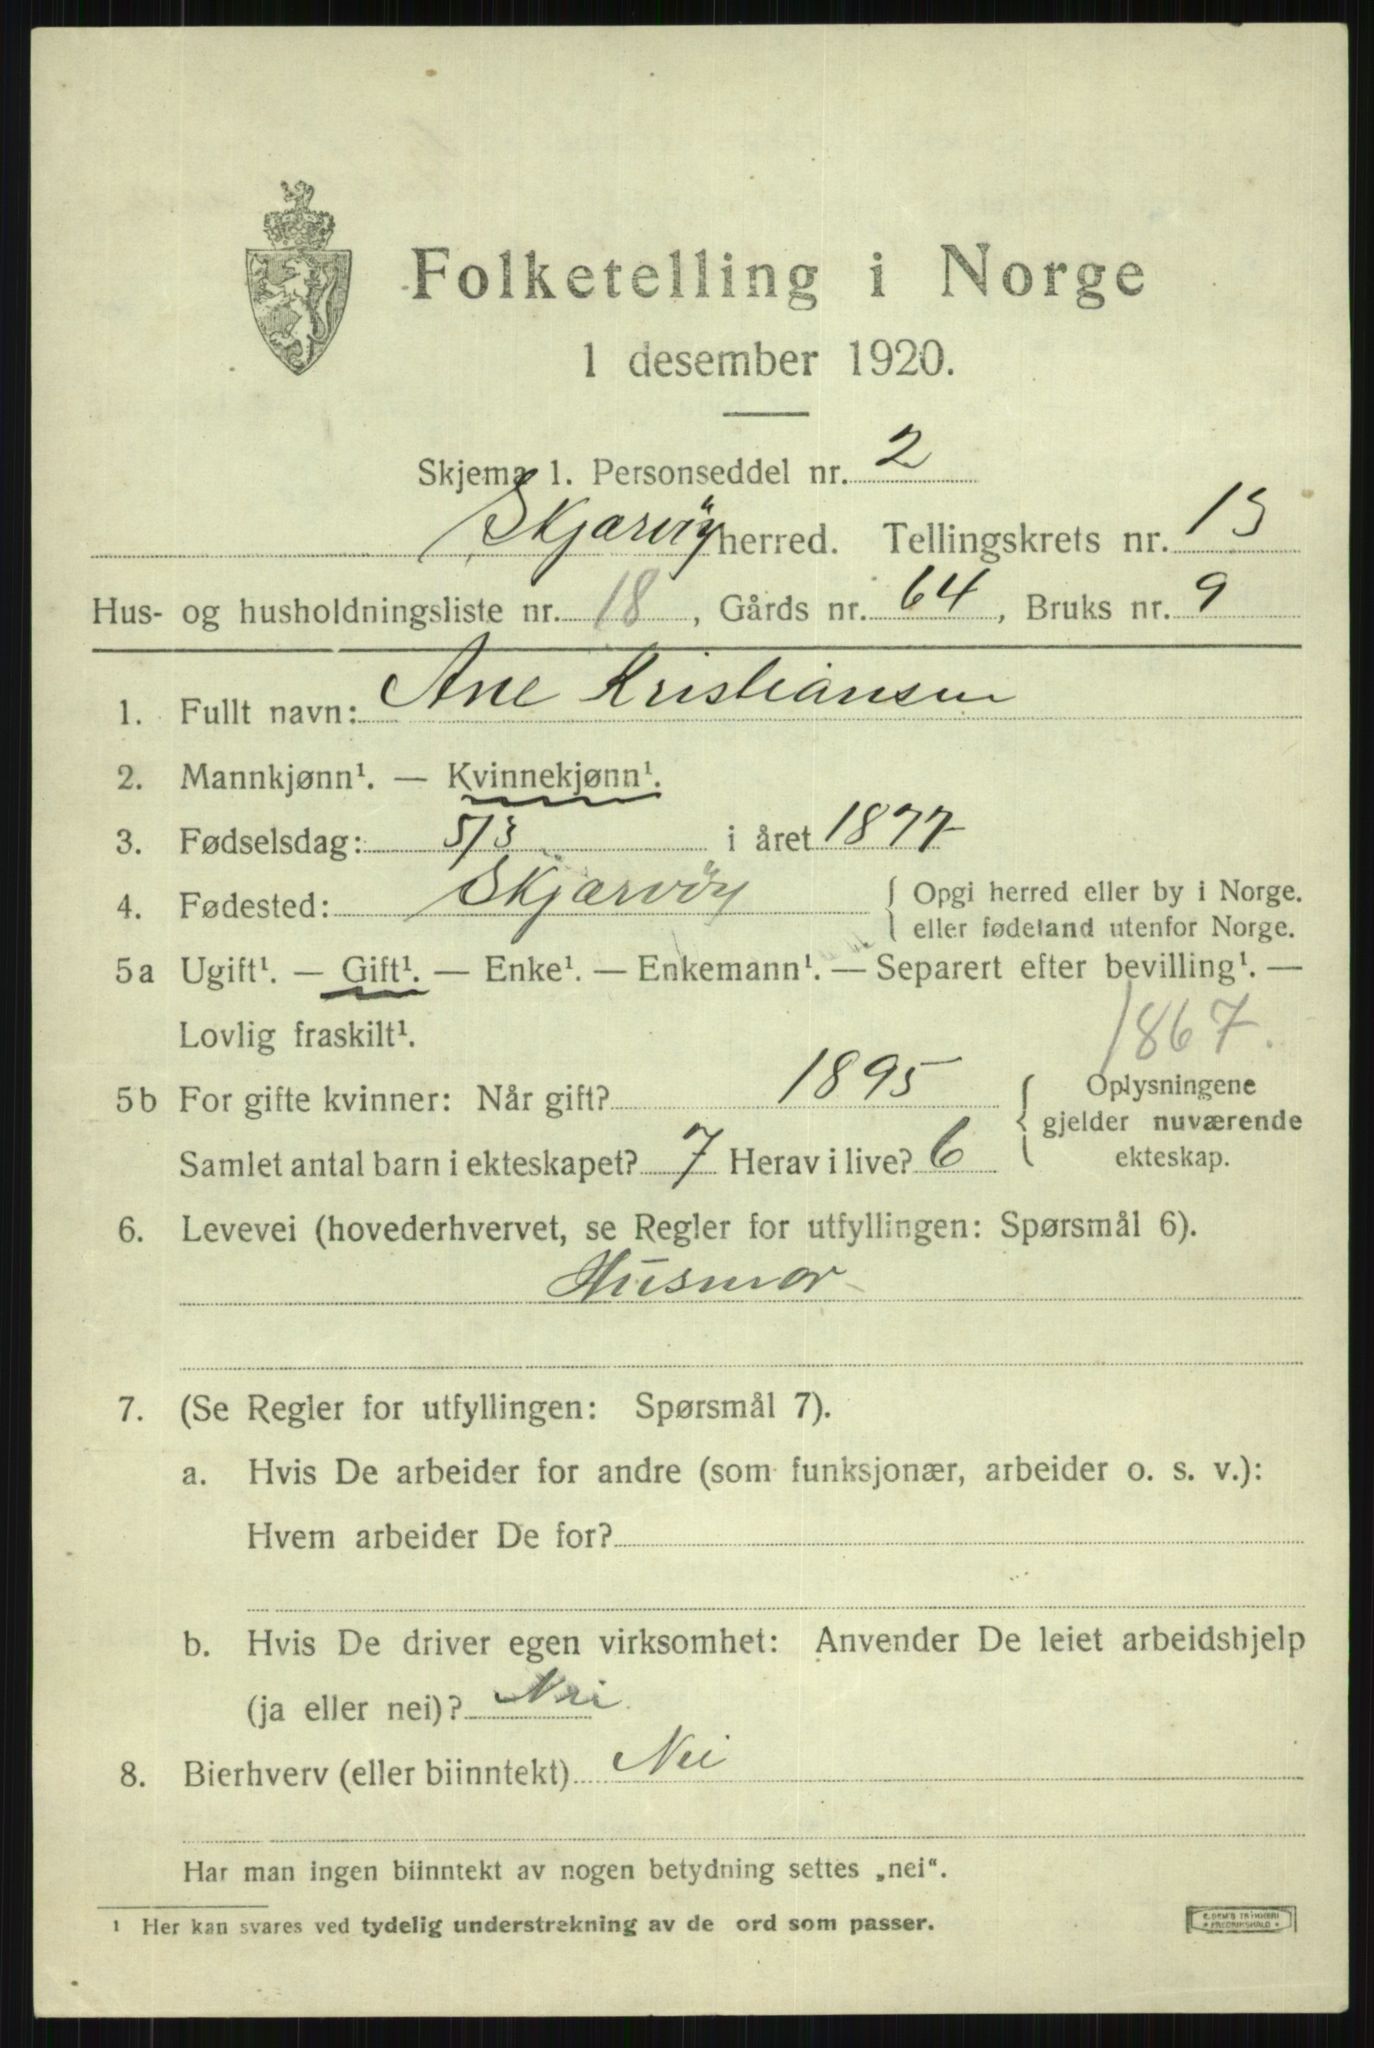 Folketelling i Norge
1 desember 1920.
Skjema 1. Personseddel nr. 2
Skjærvöy herred. Tellingskrets nr. 13
Hus- og husholdningsliste nr. 18, Gårds nr. 64, Bruks nr. 9
1. Fullt navn: Ane Kristiansen
2. Mannkjønn¹. — Kvinnekjønn¹.
3. Fødselsdag: 5/3 i året 1877
4. Fødested: Skjærvöy { Opgi herred eller by i Norge.
eller fødeland utenfor Norge.
5a Ugift¹. — Gift¹. — Enke¹. — Enkemann¹. — Separert efter bevilling¹. —
Lovlig fraskilt¹. 1867.
5b For gifte kvinner: Når gift? 1895 { Oplysningene
gjelder nuværende
Samlet antal barn i ekteskapet? 7 Herav i live? 6 ekteskap.
6. Levevei (hovederhvervet, se Regler for utfyllingen: Spørsmål 6).
Husmor
7. (Se Regler for utfyllingen: Spørsmål 7).
a. Hvis De arbeider for andre (som funksjonær, arbeider o. s. v.):
Hvem arbeider De for?
b. Hvis De driver egen virksomhet: Anvender De leiet arbeidshjelp
(ja eller nei)? Nei
8. Bierhverv (eller biinntekt) Nei
Har man ingen biinntekt av nogen betydning settes „nei“.
¹ Her kan svares ved tydelig understrekning av de ord som passer.
FREDRIKSHALD